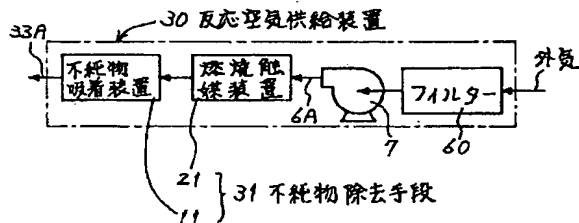 30 反応空気供給装置
33A
不純物
吸着装置
燃焼触
媒装置
6A
7
フィルター
60
外気
21
11
31 不純物除去手段